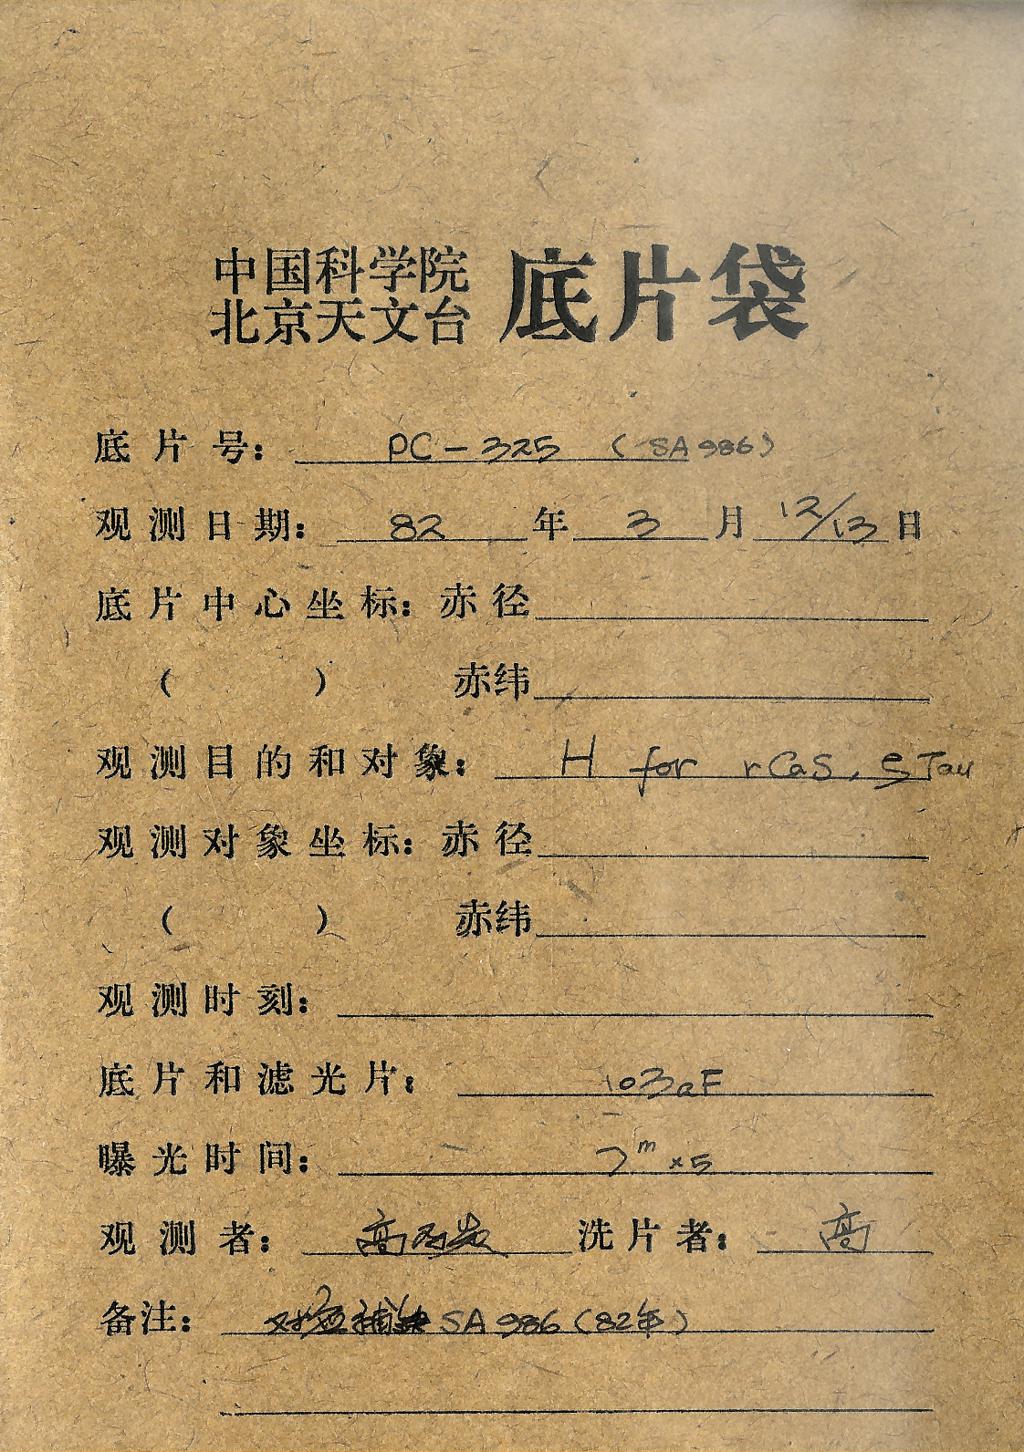 中国科学院
北京天文台 底片袋
底片号: PC-325 (SA986)
观测日期: 82年3月12/13日
底片中心坐标: 赤径
( ) 赤纬
观测目的和对象: H for rCas, ξTau
观测对象坐标: 赤径
( ) 赤纬
观测时刻:
底片和滤光片: 103aF
曝光时间: 7ᵐ×5
观测者: 高 洗片者: 高
备注: 对应 SA986(82年)